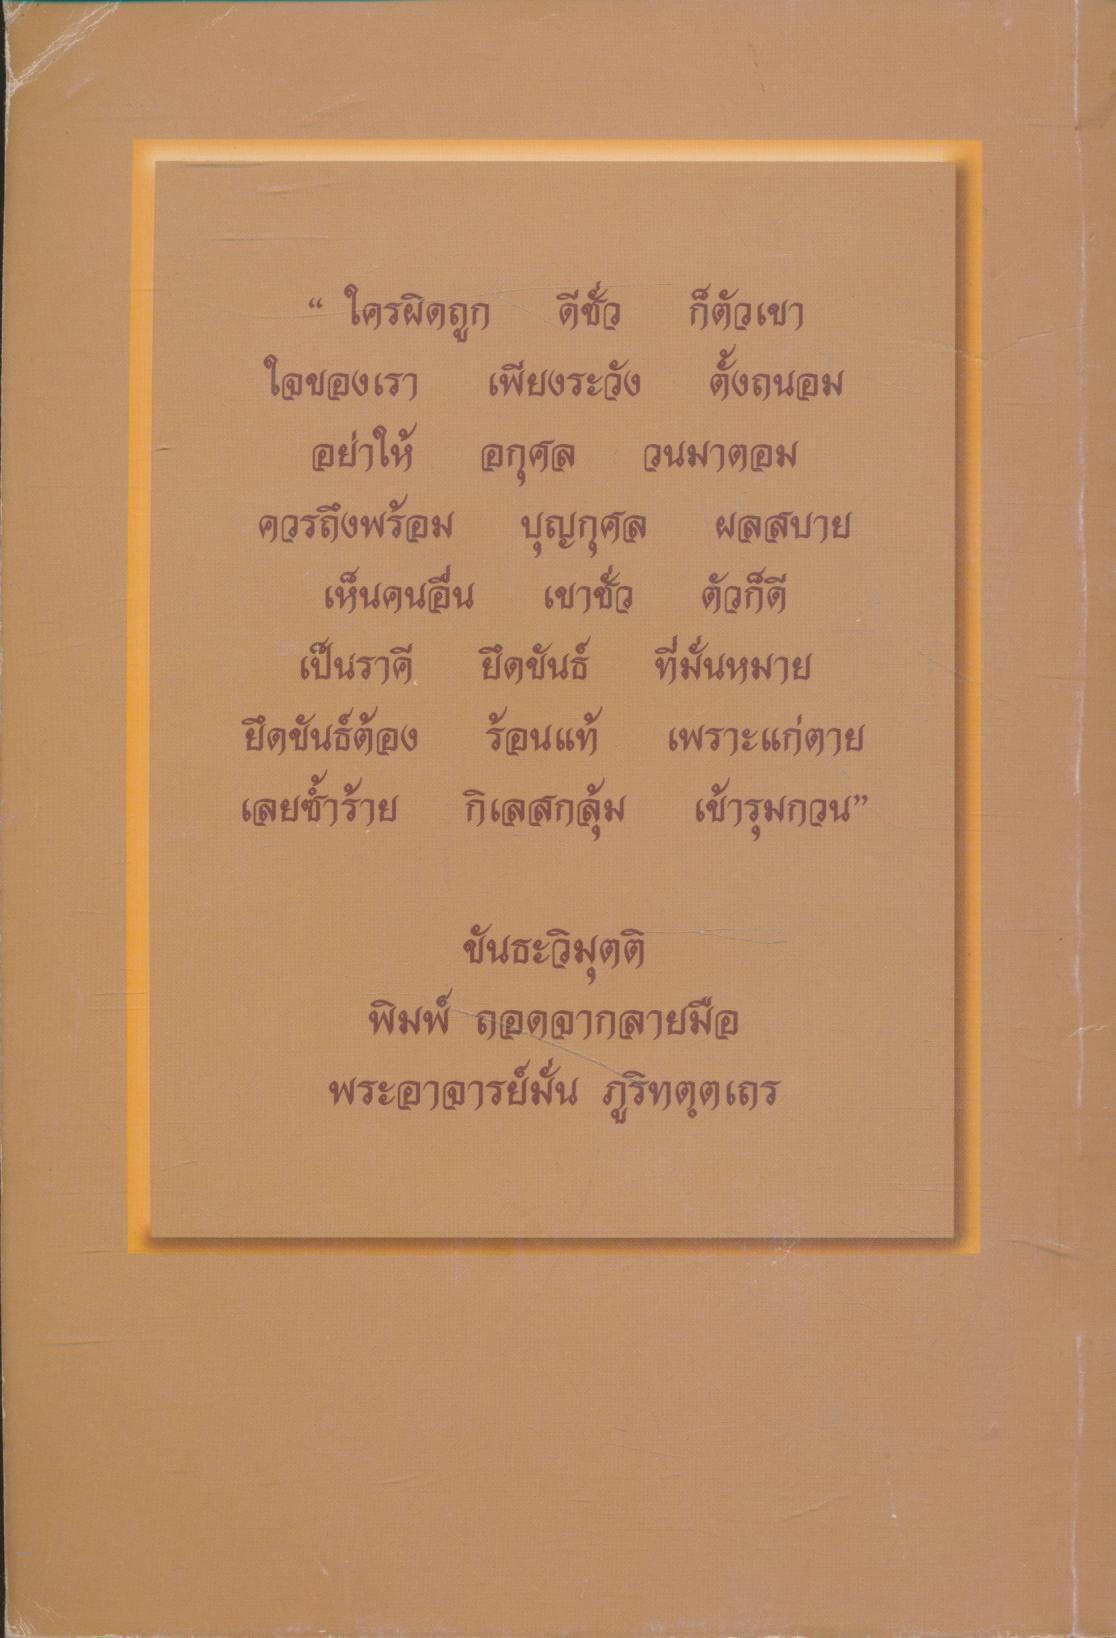 “ ใครผิดถูก ดีชั่ว ก็ตัวเขา
ใจของเรา เพียงระวัง ตั้งถนอม
อย่าให้ อกุศล วนมาตอม
ควรถึงพร้อม บุญกุศล ผลสบาย
เห็นคนอื่น เขาชั่ว ตัวก็ดี
เป็นราคี ยึดขันธ์ ที่มั่นหมาย
ยึดขันธ์ต้อง ร้อนแท้ เพราะแก่ตาย
เลยซ้ำร้าย กิเลสกลุ้ม เข้ารุมกวน”
ขันธะวิมุตติ
พิมพ์ ถอดจากลายมือ
พระอาจารย์มั่น ภูริทตฺตเถร